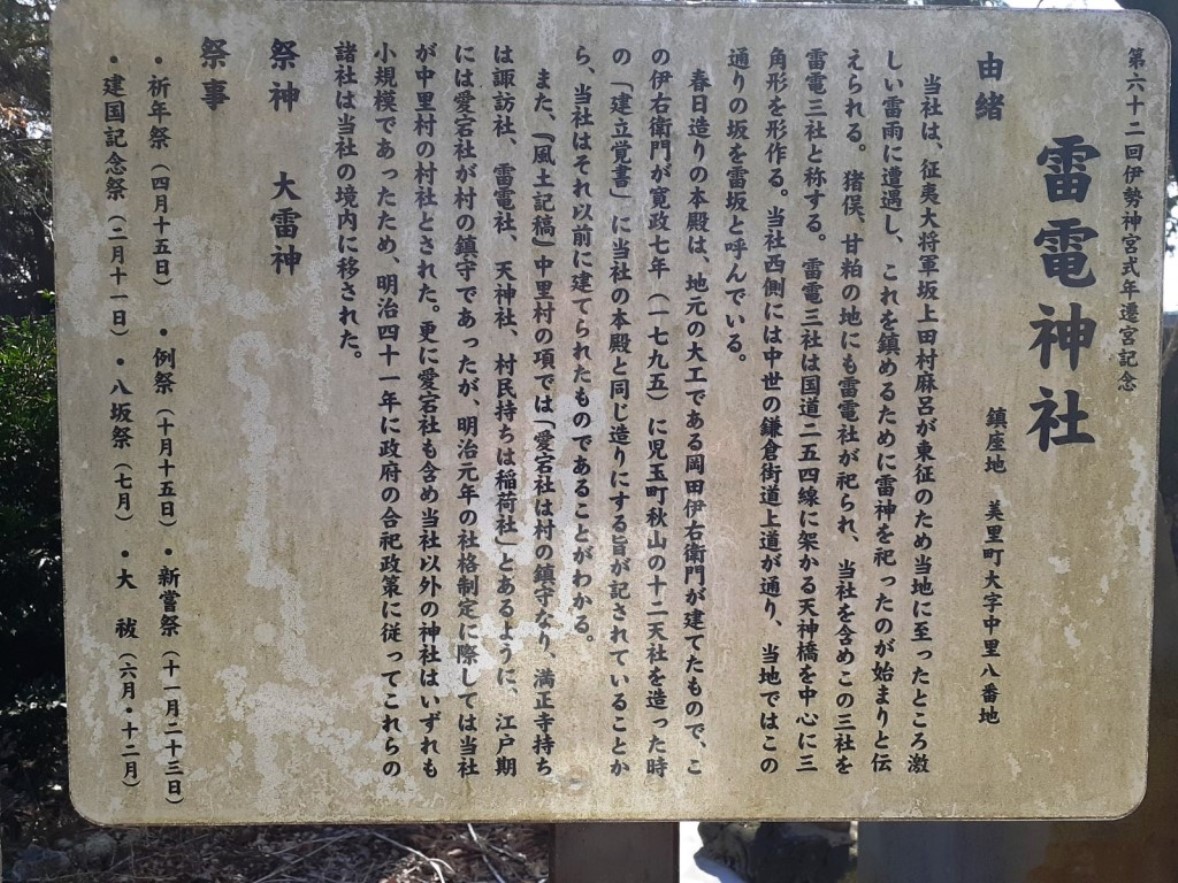 第六十二回伊勢神宮式年遷宮記念
雷電神社
鎮座地　美里町大字中里八番地
由緒
　当社は、征夷大将軍坂上田村麻呂が東征のため当地に至ったところ激
しい雷雨に遭遇し、これを鎮めるために雷神を祀ったのが始まりと伝
えられる。猪俣、甘粕の地にも雷電社が祀られ、当社を含めこの三社を
雷電三社と称する。雷電三社は国道二五四線に架かる天神橋を中心に三
角形を形作る。当社西側には中世の鎌倉街道上道が通り、当地ではこの
通りの坂を雷坂と呼んでいる。
　春日造りの本殿は、地元の大工である岡田伊右衛門が建てたもので、こ
の伊右衛門が寛政七年（一七九五）に児玉町秋山の十二天社を造った時
の「建立覚書」に当社の本殿と同じ造りにする旨が記されていることか
ら、当社はそれ以前に建てられたものであることがわかる。
　また、『風土記稿』中里村の項では「愛宕社は村の鎮守なり、満正寺持ち
は諏訪社、雷電社、天神社、村民持ちは稲荷社」とあるように、江戸期
には愛宕社が村の鎮守であったが、明治元年の社格制定に際しては当社
が中里村の村社とされた。更に愛宕社も含め当社以外の神社はいずれも
小規模であったため、明治四十一年に政府の合祀政策に従ってこれらの
諸社は当社の境内に移された。
祭神　大雷神
祭事
・祈年祭（四月十五日）・例祭（十月十五日）・新嘗祭（十一月二十三日）
・建国記念祭（二月十一日）・八坂祭（七月）・大　祓（六月・十二月）